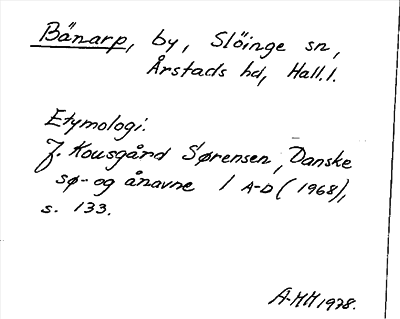 Bänarp, by, Slöinge sn,
Årstads hd, Hall. l.
Etymologi:
J. Kousgård Sørensen, Danske
sø- og ånavne 1 A-D (1968),
s. 133.
A-MM 1978.